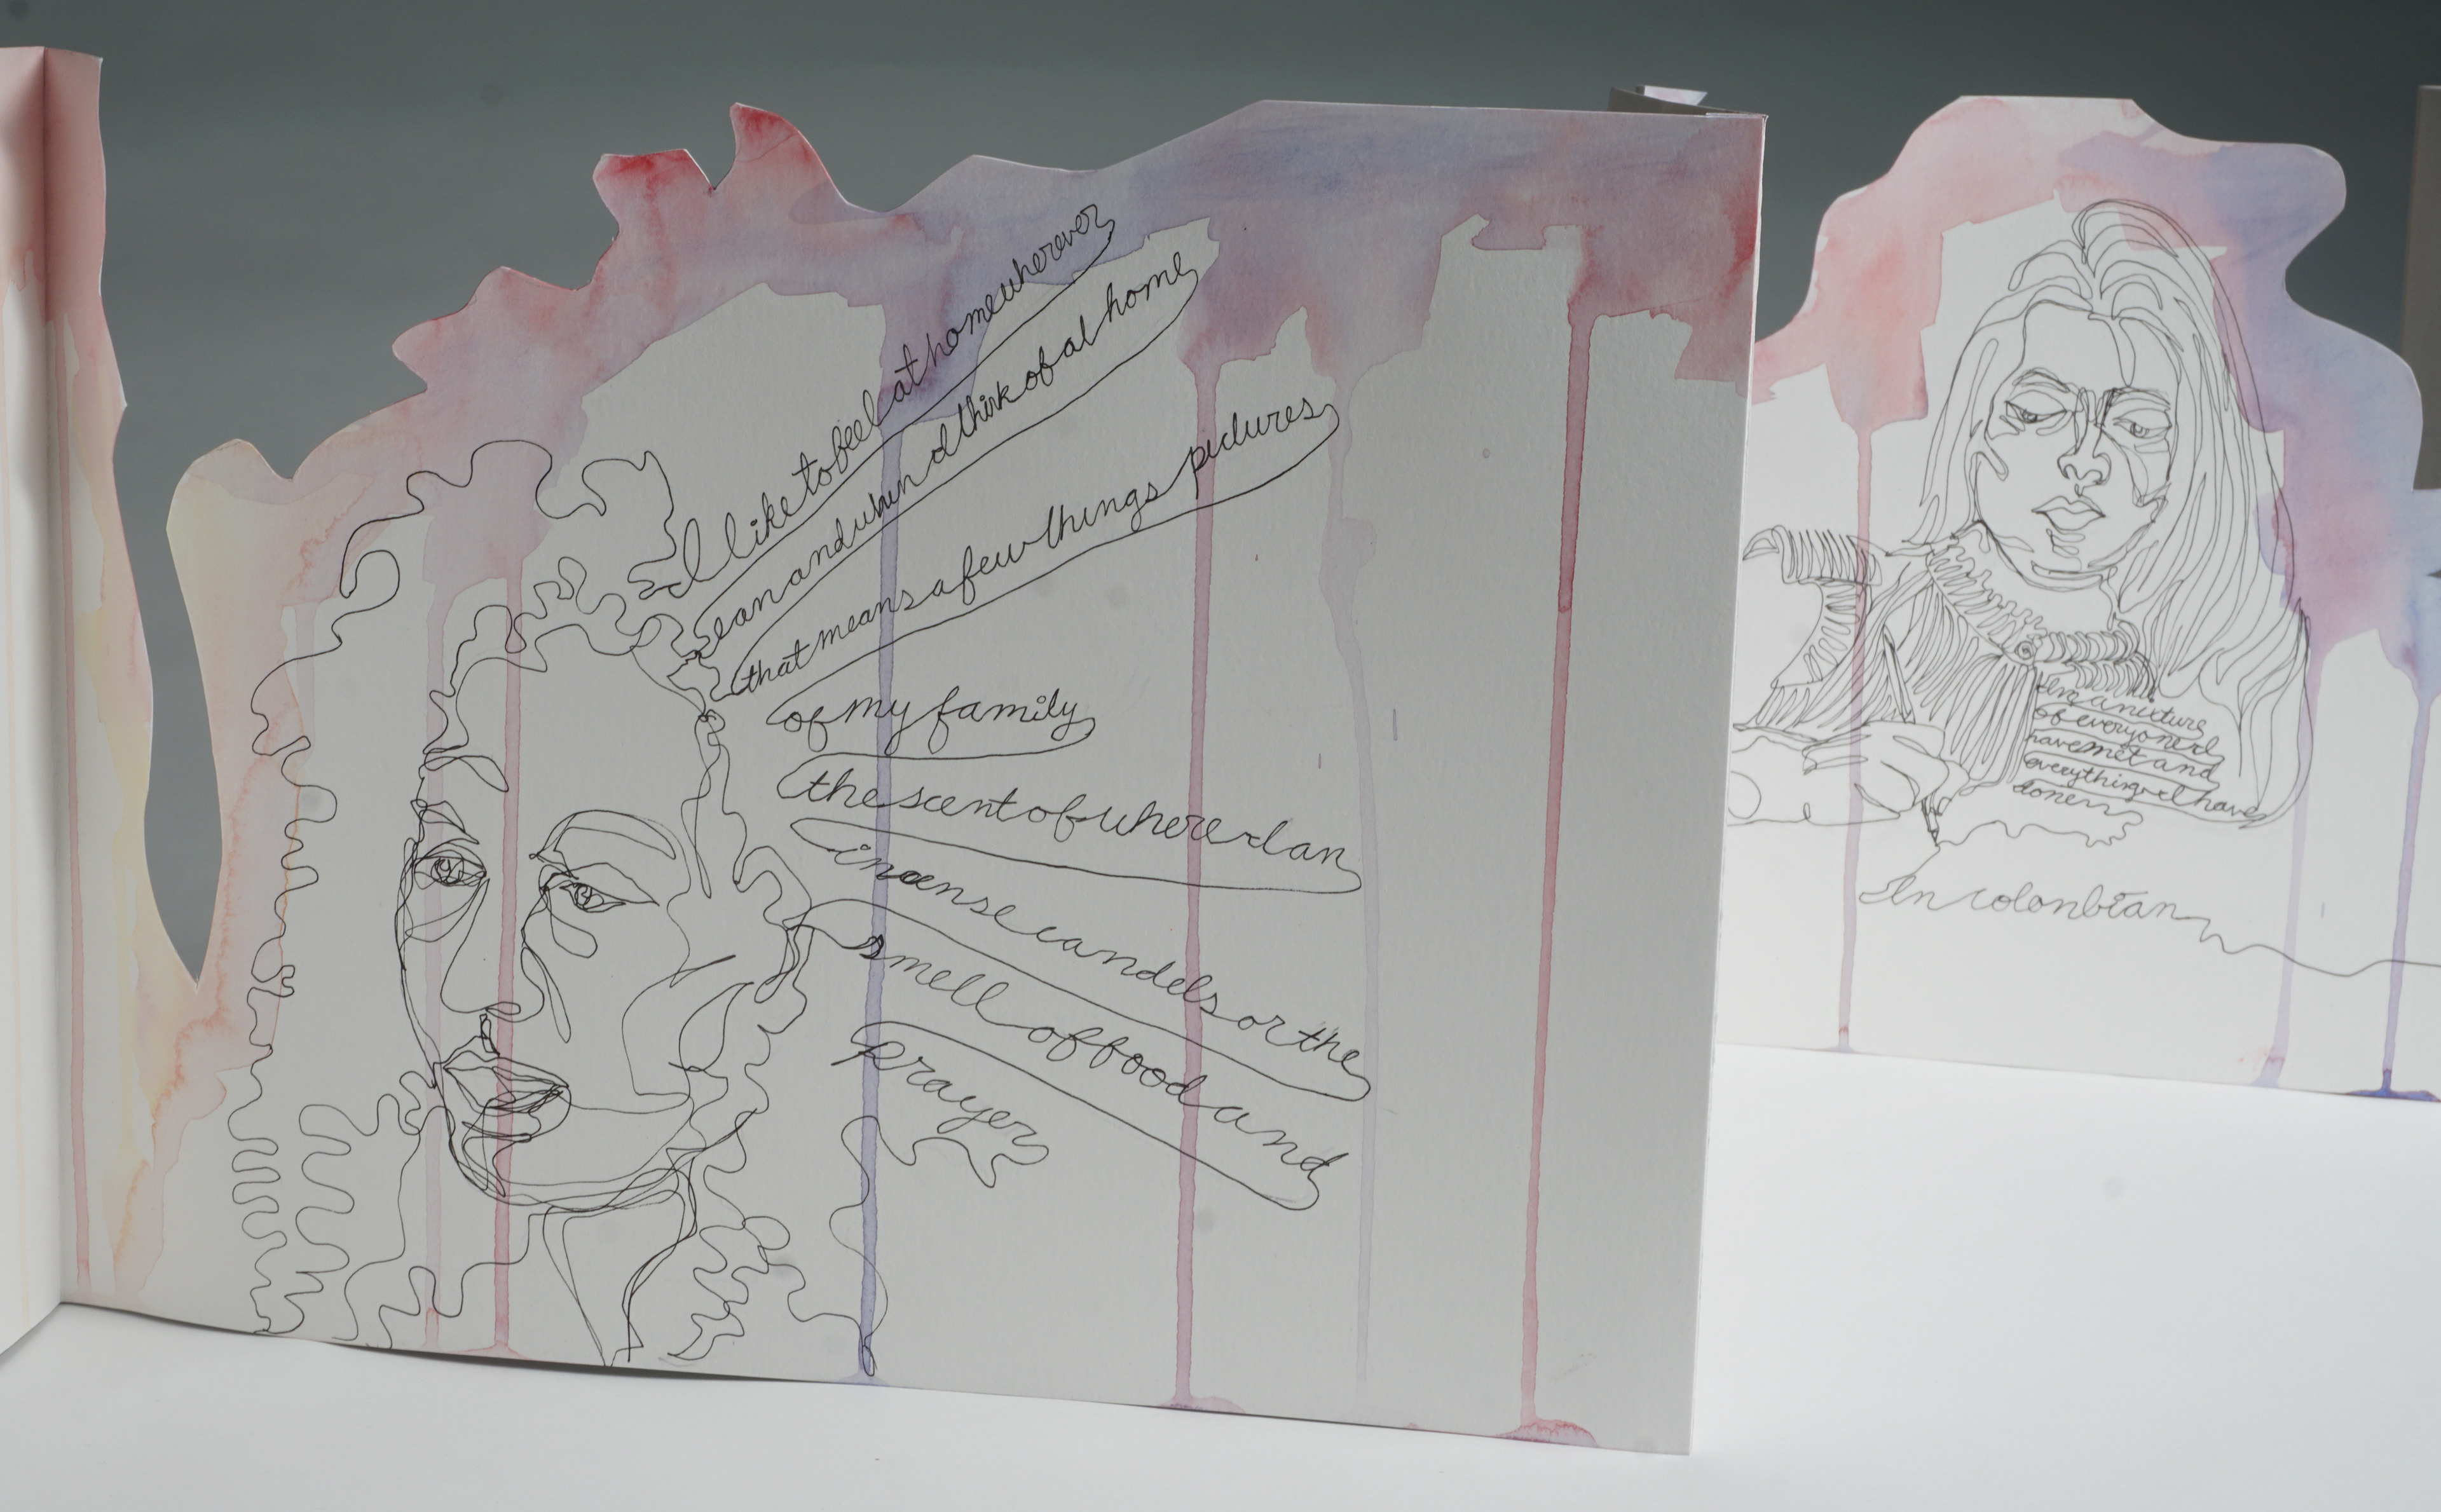 I like to feel at home wherever
I can and when I think of a home
that means a few things pictures
of my family
the scent of where I am
incense candels or the
smell of food and
prayer
I'm a mixture
of everyone I
have met and
everything I have
done
In colonbian